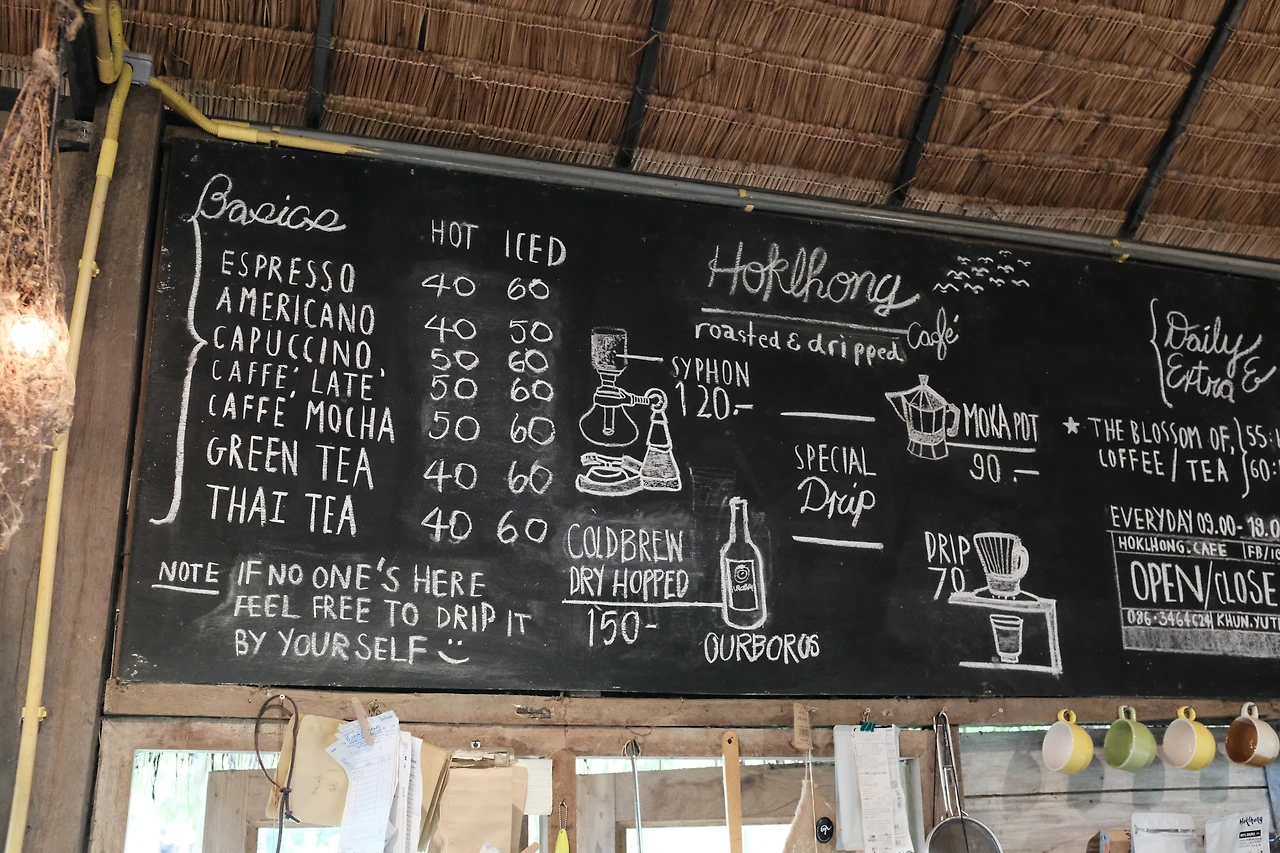 Basics
HOT ICED
ESPRESSO 40 60
AMERICANO 40 50
CAPUCCINO 50 60
CAFFE' LATE' 50 60
CAFFE' MOCHA 50 60
GREEN TEA 40 60
THAI TEA 40 60
NOTE IF NO ONE'S HERE
FEEL FREE TO DRIP IT
BY YOURSELF
SYPHON
120.-
COLDBREW
DRY HOPPED
150-
OURBOROS
Hoklhong
roasted & dripped Café
SPECIAL
Drip
MOKA POT
90.-
DRIP
70
Daily &
Extra
THE BLOSSOM OF,
COFFEE / TEA
55:
60:
EVERYDAY 09.00-
HOKLHONG.CAFE
OPEN/CLOSE
KHUN.